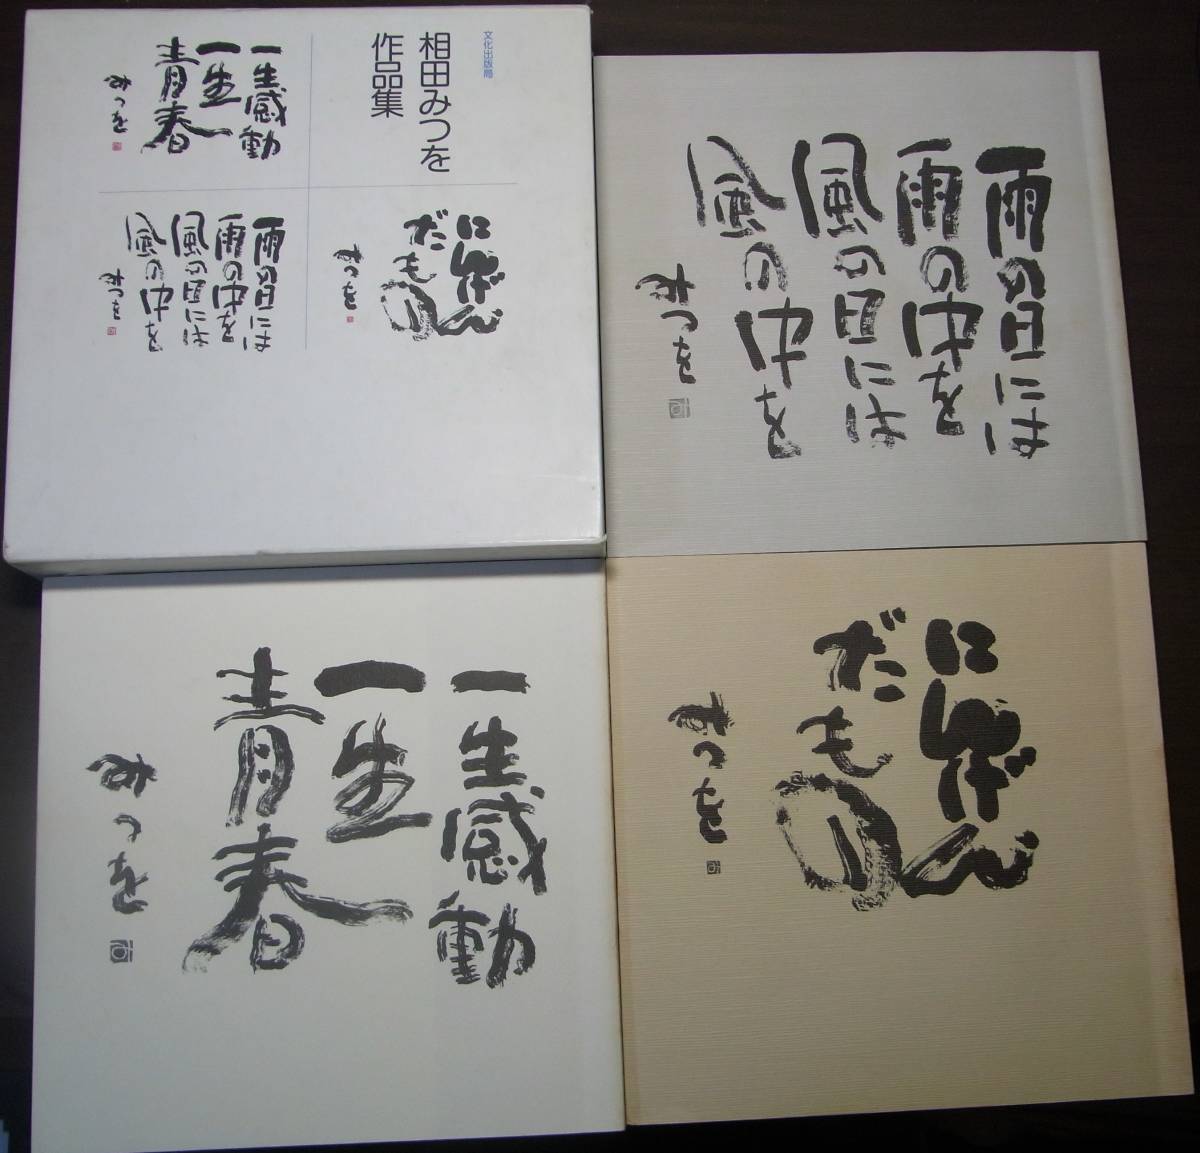 文化出版局
相田みつを
作品集
一生感動
一生
青春
みつを
にんげん
だもの
みつを
雨の日には
雨の中を
風の日には
風の中を
みつを
雨の日には
雨の中を
風の日には
風の中を
みつを
一生感動
一生
青春
みつを
にんげん
だもの
みつを